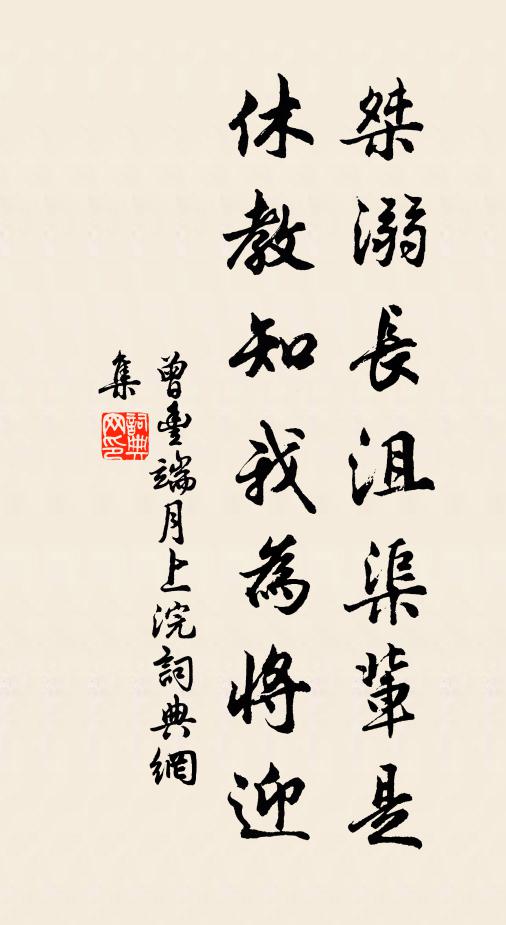 桀溺長沮渠輩是
休教知我為將迎
曾豊端月上浣詞典網
集
詞典网印